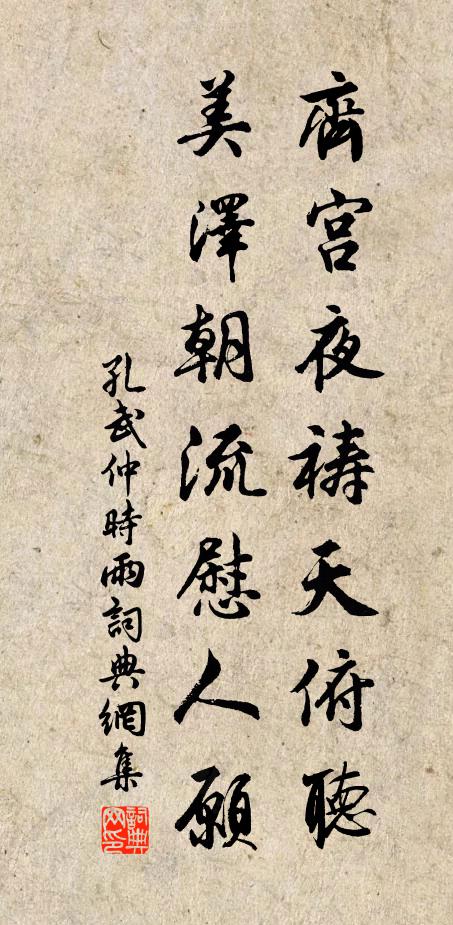 齊宮夜禱天俯聽
美澤朝流慰人願
孔武仲時雨詞典網集
詞典网印